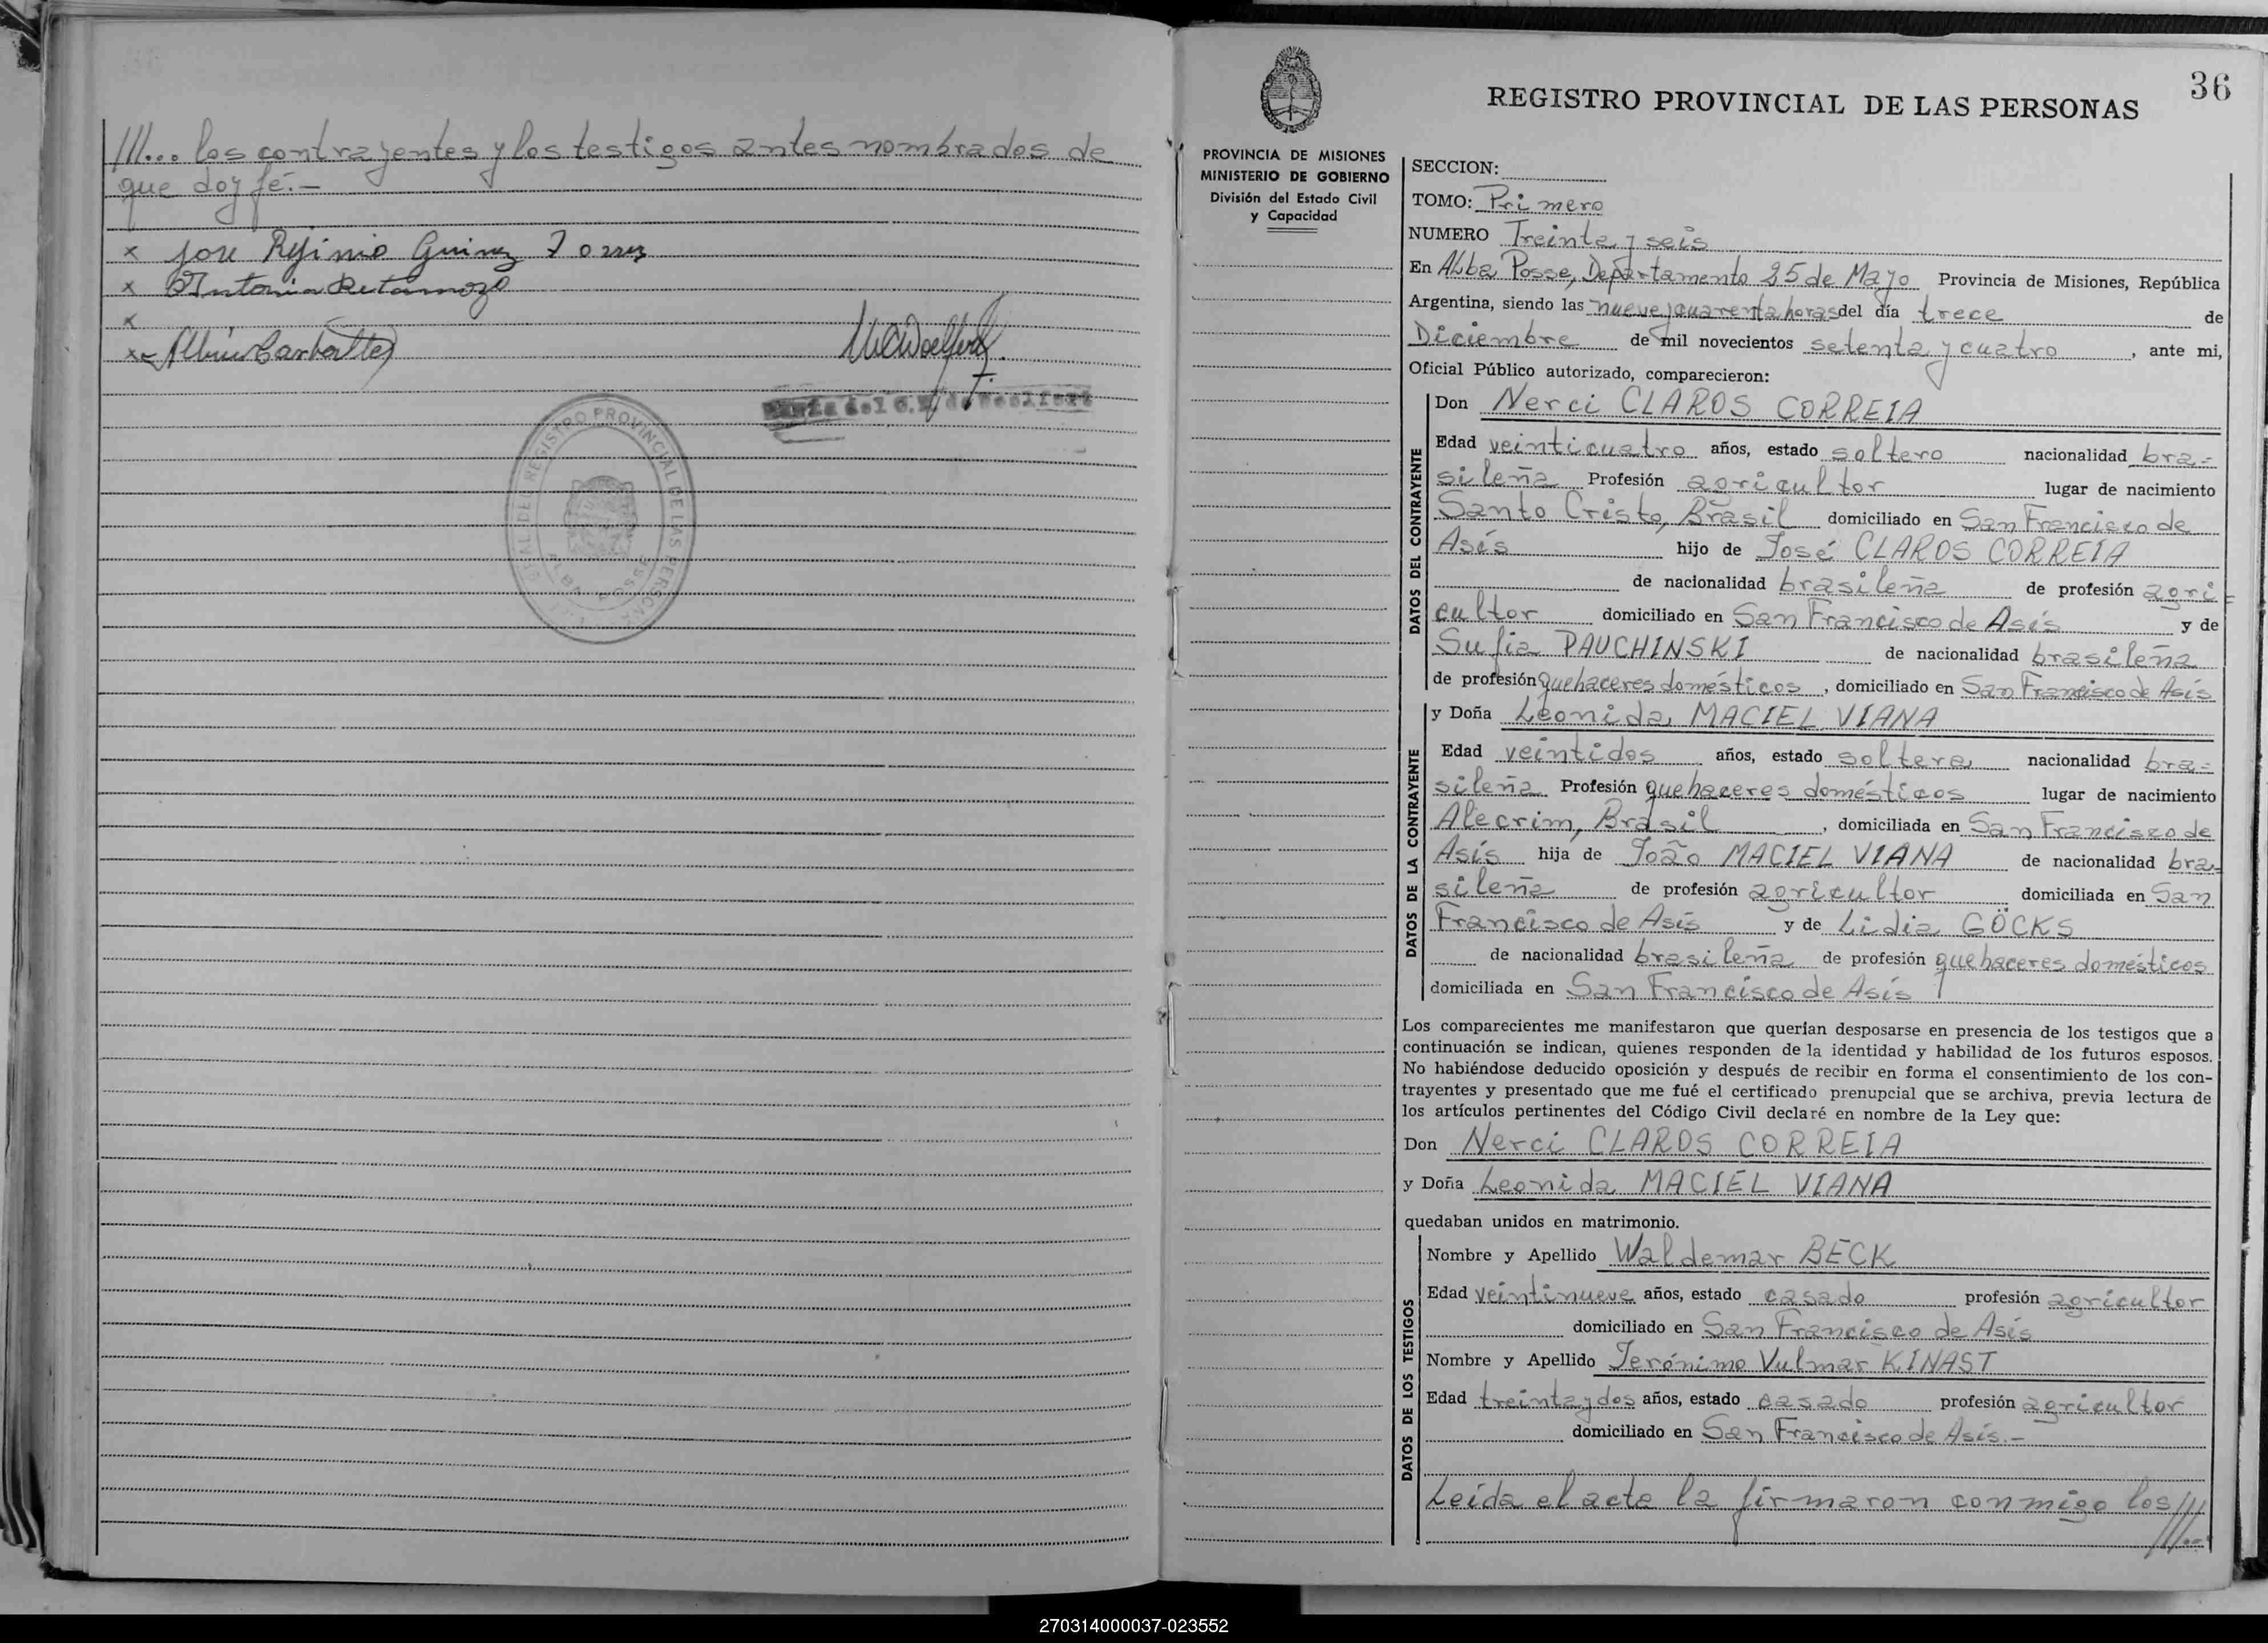 ///... los contrayentes y los testigos antes nombrados de
que doy fé.-
x José Rejinio Torres
x Antonia Retamozo
x
x
REGISTRO PROVINCIAL DE LAS PERSONAS
ALBA POSSE
36
REGISTRO PROVINCIAL DE LAS PERSONAS
PROVINCIA DE MISIONES
MINISTERIO DE GOBIERNO
División del Estado Civil
y Capacidad
SECCION:
TOMO: Primero
NUMERO Treinta y seis
En Alba Posse, Departamento 25 de Mayo Provincia de Misiones, República
Argentina, siendo las nueve y cuarenta horas del día trece de
Diciembre de mil novecientos setenta y cuatro, ante mi,
Oficial Público autorizado, comparecieron:
DATOS DEL CONTRAYENTE
Don Nerci CLAROS CORREIA
Edad veinticuatro años, estado soltero nacionalidad bra-
sileña Profesión agricultor lugar de nacimiento
Santo Cristo, Brasil domiciliado en San Francisco de
Asís hijo de José CLAROS CORREIA
de nacionalidad brasileña de profesión agri=
cultor domiciliado en San Francisco de Asís y de
Sufia PAUCHINSKI de nacionalidad brasileña
de profesión quehaceres domésticos, domiciliado en San Francisco de Asís
DATOS DE LA CONTRAYENTE
y Doña Leonida MACIEL VIANA
Edad veintidos años, estado soltera nacionalidad bra=
sileña Profesión quehaceres domésticos lugar de nacimiento
Alecrim, Brasil, domiciliada en San Francisco de
Asís hija de João MACIEL VIANA de nacionalidad bra=
sileña de profesión agricultor domiciliada en San
Francisco de Asís y de Lidia GÖCKS
de nacionalidad brasileña de profesión quehaceres domésticos
domiciliada en San Francisco de Asís
Los comparecientes me manifestaron que querían desposarse en presencia de los testigos que a
continuación se indican, quienes responden de la identidad y habilidad de los futuros esposos.
No habiéndose deducido oposición y después de recibir en forma el consentimiento de los con-
trayentes y presentado que me fué el certificado prenupcial que se archiva, previa lectura de
los artículos pertinentes del Código Civil declaré en nombre de la Ley que:
Don Nerci CLAROS CORREIA
y Doña Leonida MACIEL VIANA
quedaban unidos en matrimonio.
DATOS DE LOS TESTIGOS
Nombre y Apellido Waldemar BECK
Edad veintinueve años, estado casado profesión agricultor
domiciliado en San Francisco de Asís
Nombre y Apellido Jerónimo Vulmar KINAST
Edad treinta y dos años, estado casado profesión agricultor
domiciliado en San Francisco de Asís.-
Leída el acta la firmaron conmigo los///
///...
270314000037-023552